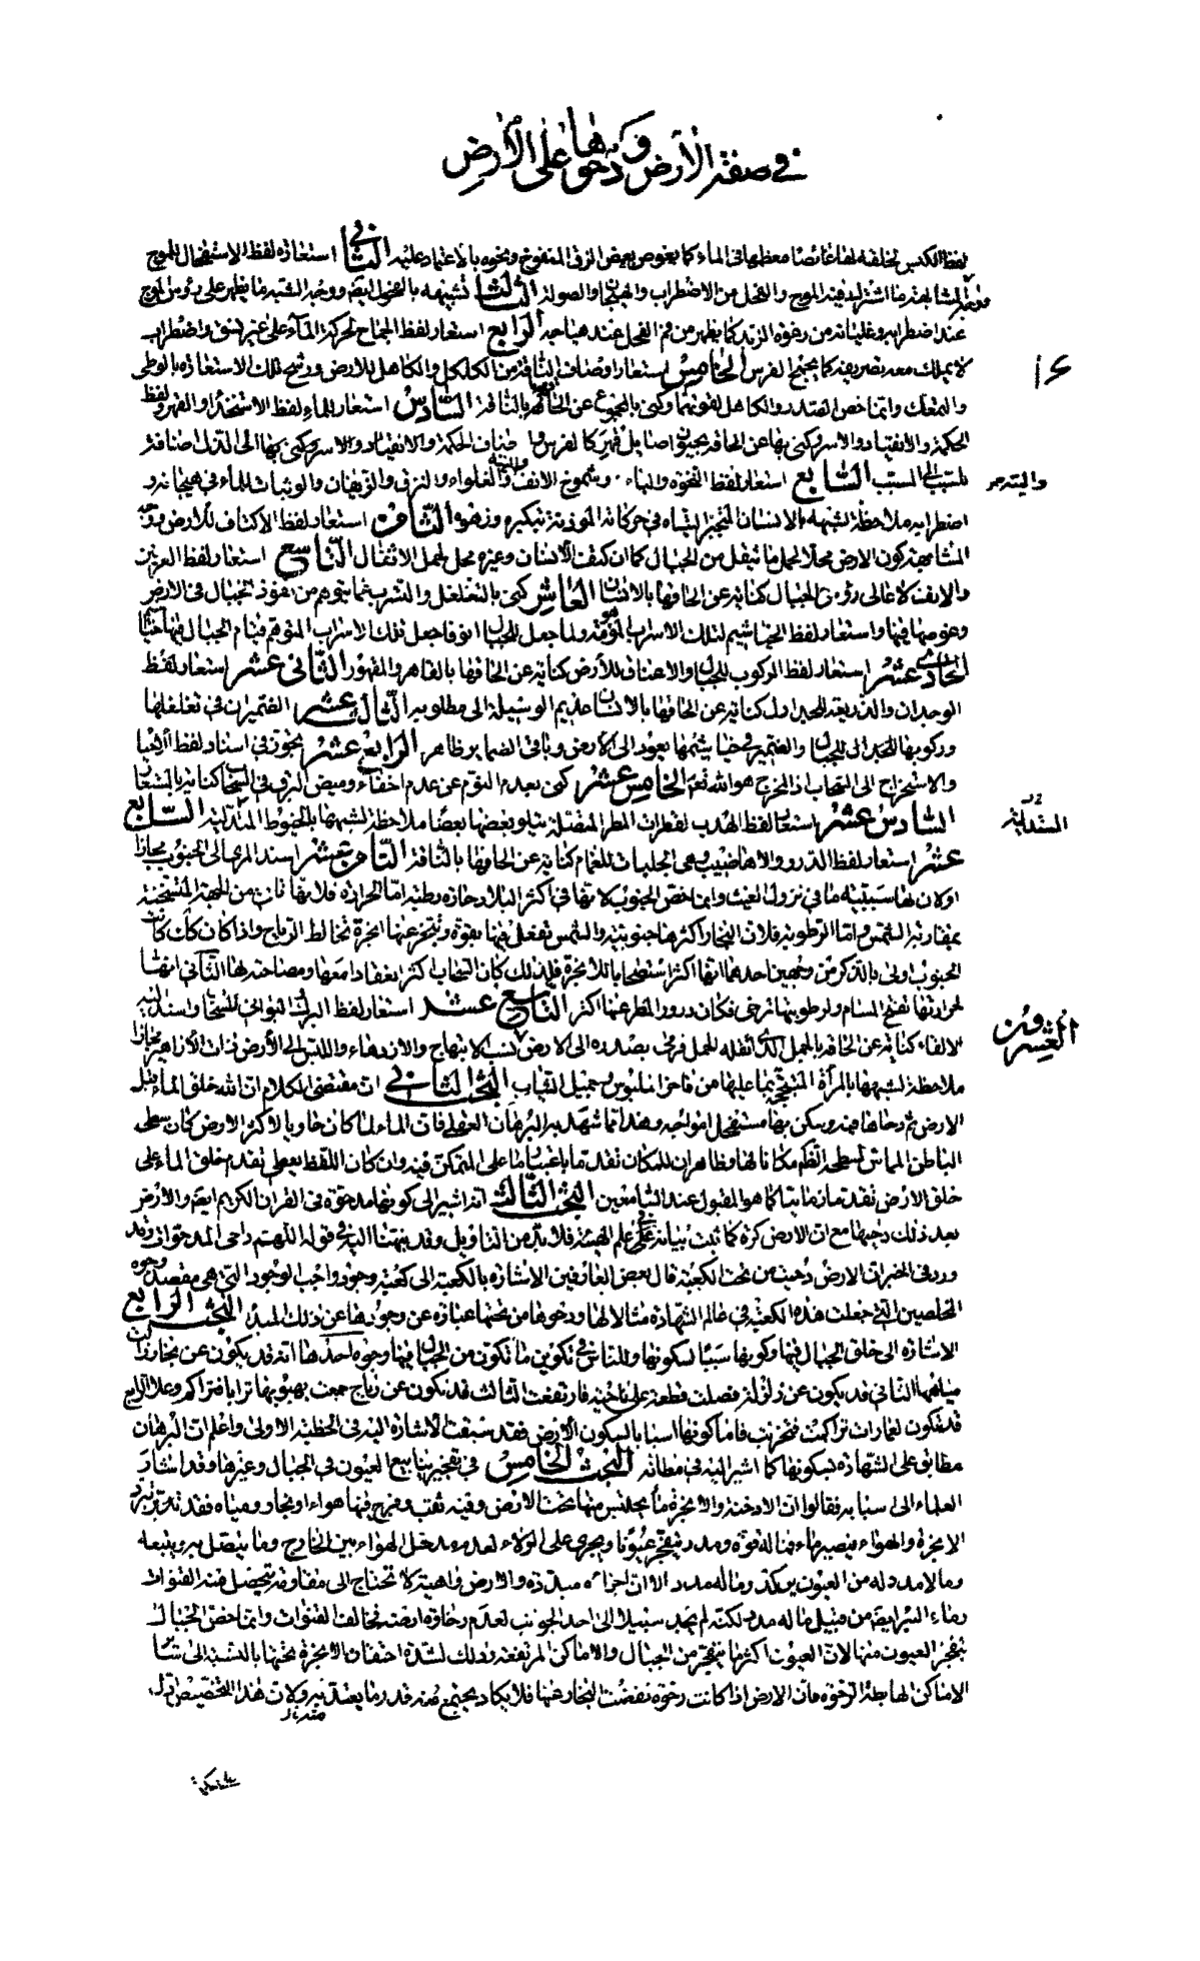 في صفة الأرض ودحوها على الأرض
لفظ الكبس لخلقه لها غائصا معظمها في الماء كما يغوص بعض الزق المنفوخ ونحوه بالاعتماد عليه الثاني استعارة لفظ الاستفحال للموج
للمشابهة ما اشترك فيه الموج والفحل من الاضطراب والهيجان والصولة الثالث تشبيهه بالفحول ايضا ووجه الشبه ما يظهر على رؤس الموج
عند اضطرابه وغليانه من رغوة الزبد كما يظهر من فم الفحل عند هياجه الرابع استعار لفظ الجماح لحركة الماء على غير نسق واضطراب
لا يملك معه تصريفه كما يجمح الفرس الخامس استعار اوصاف الناقة من الكلكل والكاهل للارض ورشح تلك الاستعارة بالوطى
١٤
والتمعك وانما خص الصدر والكاهل لقوتهما وكنى بالمجموع عن الحاقها بالناقة السادس استعار للماء لفظ الاستخذاء والقهر ولفظ
الحكمة والانقياد والاسر وكنى بها عن الحاقه بحيوان صايل قهر كالفرس و اضاف الحكمة والانقياد والاسر وكنى بها الى الذل اضافة
للسبب الى المسبب السابع استعار لفظ النخوة والباء وشموخ الانف والغلواء والنزق والزيفان والوثبات للماء في هيجانه و
اضطرابه ملاحظة لشبهه بالانسان المتجبر التياه في حركاته المؤذنة بتكبره وزهوه الثامن استعار لفظ الاكتاف للارض ووجه
المشابهة كون الارض محلا لحمل ما يثقل من الجبال كما ان كتف الانسان وغيره محل لحمل الاثقال التاسع استعار لفظ العرنين
والانف لاعالى رؤس الجبال كناية عن الحاقها بالانسان العاشر كنى بالتغلغل والتسرب عما يتوهم من نفوذ الجبال في الارض
وغوصها فيها واستعار لفظ الخياشيم لتلك الاسراب المتوهمة ولما جعل للجبال انوفا جعل تلك الاسراب المتوهم قيام الجبال فيها خياشيم
الحادى عشر استعار لفظ الركوب للجبال والاعناق للارض كناية عن الحاقها بالقاهر والمقهور الثانى عشر استعار لفظ
الوجدان والذريعة للجداول كناية عن الحاقها بالانسان عديم الوسيلة الى مطلوبه الثالث عشر الضميران في تغلغلها
وركوبها للجبال والضمير في خياشيمها يعود الى الارض وباقى الضماير ظاهر الرابع عشر تجوز في اسناد لفظ
والاستخراج الى السحاب اذ المخرج هو الله تعالى الخامس عشر كنى بعدم النوم عن عدم اخفاء وميض البرق في السحاب كناية بالمستعار
السادس عشر استعار لفظ الهدب لقطرات المطر المتصلة يتلو بعضها بعضا ملاحظة لشبهها بالخيوط المتدلية السابع
عشر استعار لفظ الدرر والاهاضيب وهى الجلبات للغمام كناية عن الحاقها بالناقة الثامن عشر اسند المرى الى الجنوب مجازا
اذ كان لها سببية ما في نزول الغيث وانما خص الجنوب لانها في أكثر البلاد حارة رطبة اما الحرارة فلانها تاتى من الجهة المتسخنة
بمقاربة الشمس واما الرطوبة فلان البحار اكثرها جنوبية والشمس تفعل فيها بقوة وتبخر عنها ابخرة تخالط الرياح واذا كان كك كانت
الجنوب اولى بالذكر من وجهين احدهما انها اكثر استصحابا للابخرة فلذلك كان السحاب اكثر انعقادا معها ومصاحبة لها الثانى انها
لحرارتها تفتح المسام ولرطوبتها ترخى فكان درور المطر عنها اكثر التاسع عشر استعار لفظ البرك والبوانى للسحاب واسند اليه
العشرون
الالقاء كناية عن الحاقه بالجمل الذى اثقله الحمل فرمى بصدره الى الارض نسب الابتهاج والازدهاء واللبس الى الأرض ذات الأزاهير مجازا
ملاحظة لشبهها بالمرأة المتبجحة بما عليها من فاخر الملبوس وجميل الثياب البحث الثاني ان مقتضى الكلام ان الله خلق الماء قبل
الارض ثم دحاها فيه وسكن بها مستفحل امواجه وهذا مما شهد به البرهان العقلي فان الماء لما كان حاويا لاكثر الارض كان سطحه
الباطن المماس لسطحه الظاهر مكانا لها وظاهر ان للمكان تقدما باعتبار ما على المتمكن فيه وان كان اللفظ يعطى تقدم خلق الماء على
خلق الارض تقدما زمانيا كما هو المقبول عند السامعين البحث الثالث انه اشير الى كونها مدحوة في القران الكريم ايضا والأرض
بعد ذلك دحيها مع ان الارض كرة كما ثبت بيانه في علم الهيئة فلا بد من التأويل وقد نبهنا اليه في قوله اللهم داحى المدحوات وقد
ورد في الخبر ان الارض دحيت من تحت الكعبة قال بعض العارفين الاشارة بالكعبة الى كعبة وجود واجب الوجود التى هى مقصد وجوه
المخلصين التى جعلت هذه الكعبة في عالم الشهادة مثالا لها ودحوها من تحتها عبارة عن وجودها عن ذلك المبدء البحث الرابع
الاشارة الى خلق الجبال فيها وكونها سببا لسكونها وللناس في تكوين ما تكون من الجبال فيها وجوه احدها انه قد يكون عن بخار
مياهها الثانى قد يكون عن زلزلة فصلت قطعة على ناحية فارتفعت الثالث قد يكون عن رياح جمعت بهبوبها ترابا فتراكم وعلا الرابع
قد يكون لعمارات تراكمت فتخربت فاما كونها اسبابا لسكون الأرض فقد سبقت الاشارة اليه في الخطبة الاولى واعلم ان البرهان
مطابق على الشهادة لسكونها كما اشير اليه في مظانه البحث الخامس في تفجير ينابيع العيون في الجبال وغيرها وقد اشار
العلماء الى سبابه فقالوا ان الادخنة والابخرة ما يحتبس منها تحت الارض وفيه ثقب وفرج فيها هواء او بخار ومياه فقد تبرد
الابخرة والهواء فيصير ماء فما له قوة ومدد يتفجر عيونا ويجرى على الولاء لعدم مدخل الهواء بين الخارج وما يتصل به ويتبعه
وما لا مدد له من العيون يركد وما له مدد الا ان اجزاءه مبددة والارض واهية لا تحتاج الى مقاومة يتحصل منه القنوات
وماء البئر ايضا من قبيل ما له مدد لكنه لم يجد سبيلا الى احد الجوانب لعدم رخاوة ارضه فخالف القنوات وانما خص الجبال
بتفجر العيون منها لان العيون اكثر ما يتفجر من الجبال والاماكن المرتفعة وذلك لشدة احتقان الابخرة تحتها بالنسبة الى سائر
الاماكن الهابطة الرخوة فان الارض اذا كانت رخوة نفضت البخار عنها فلا يكاد يجتمع منه قدر ما يعتد به ولان هذا التخصيص